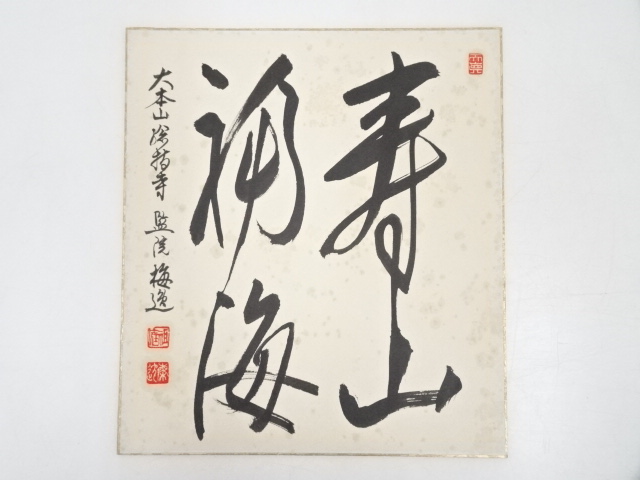 寿山
福海
大本山總持寺 監院梅逸